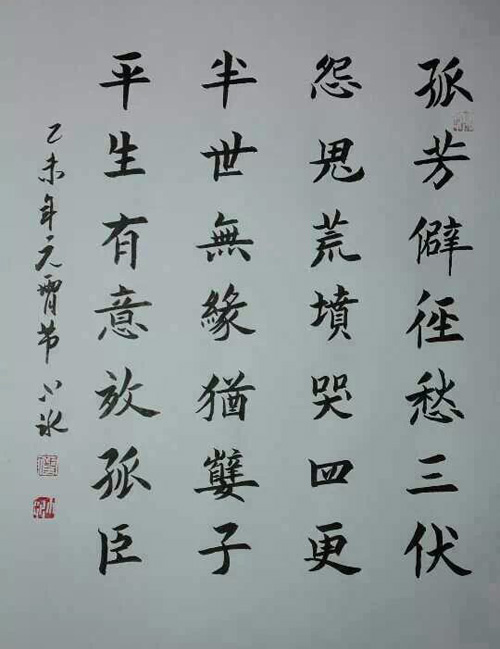 孤芳僻径愁三伏
怨鬼荒墳哭四更
半世無緣猶孽子
平生有意放孤臣
乙未年元宵节 冰